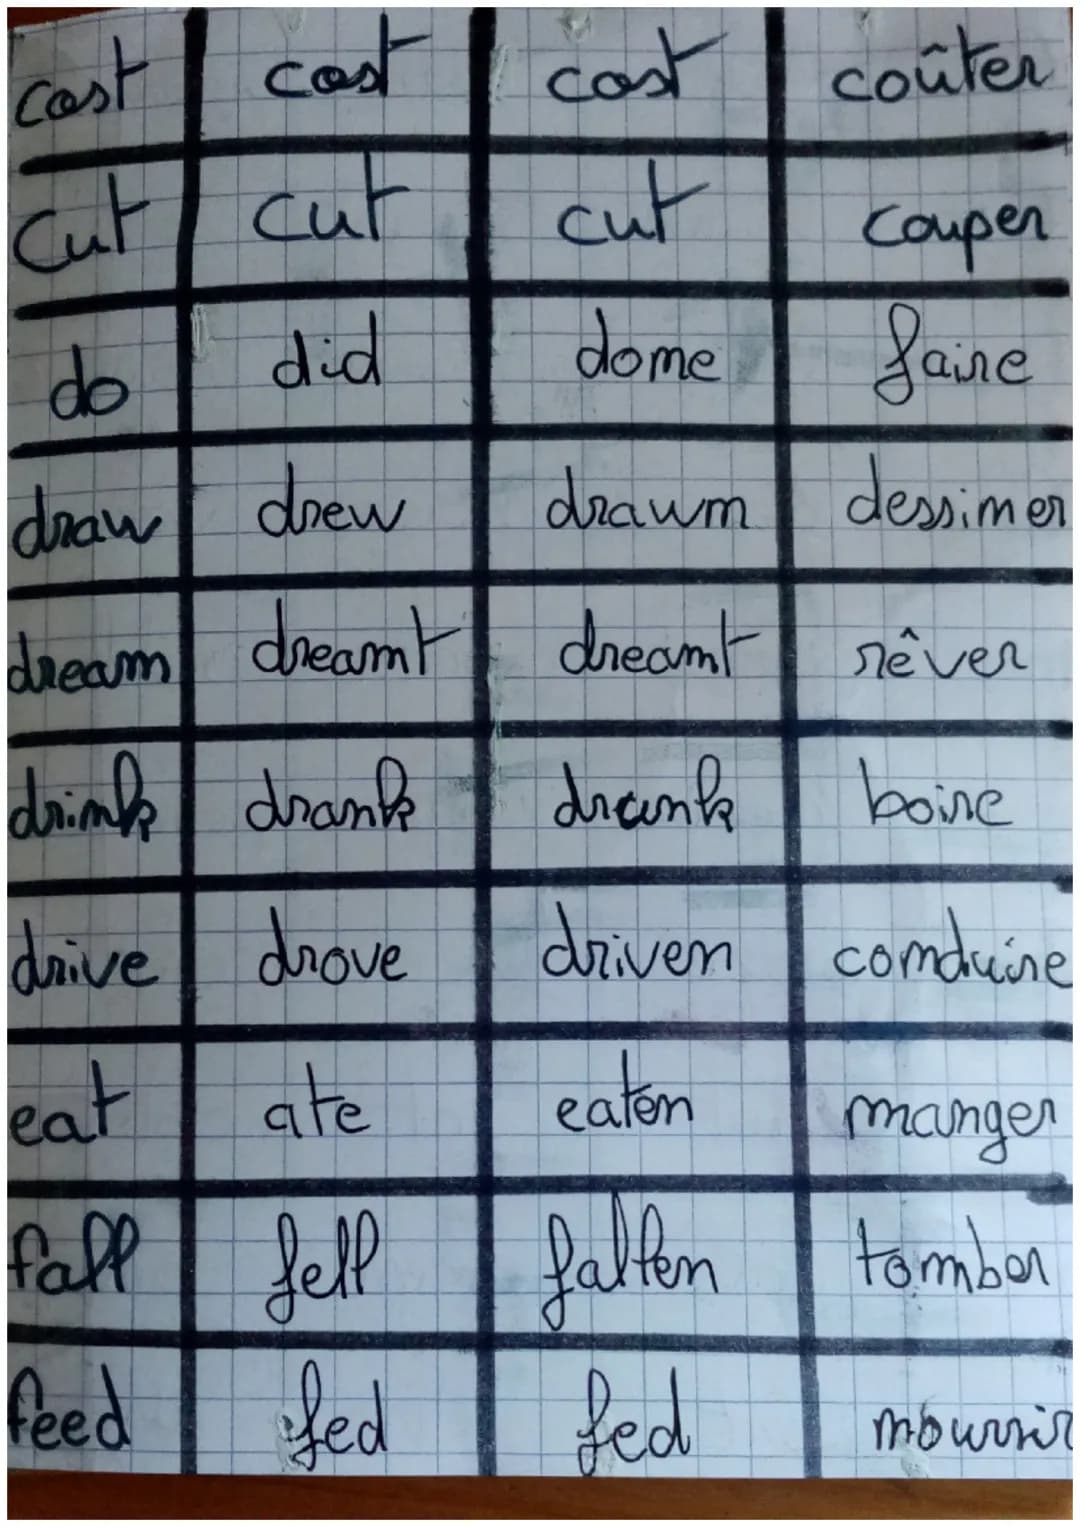 cost cost cost coûter
cut cut cut couper
do did done faire
draw drew drawn dessiner
dream dreamt dreamt rêver
drink drank drunk boire
drive drove driven conduire
eat ate eaten manger
fall fell fallen tomber
feed fed fed nourrir